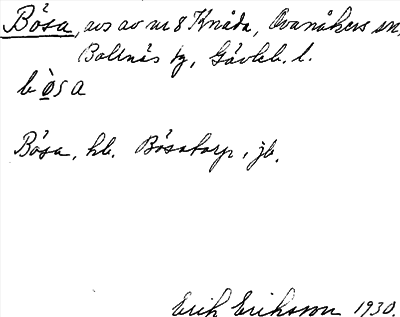 Bösa, avs av nr 8 Knåda, Ovanåkers sn,
Bollnäs tg, Gävleb. l.
bösa
Bösa, hb. Bösatorp, jb.
Erik Eriksson 1930.